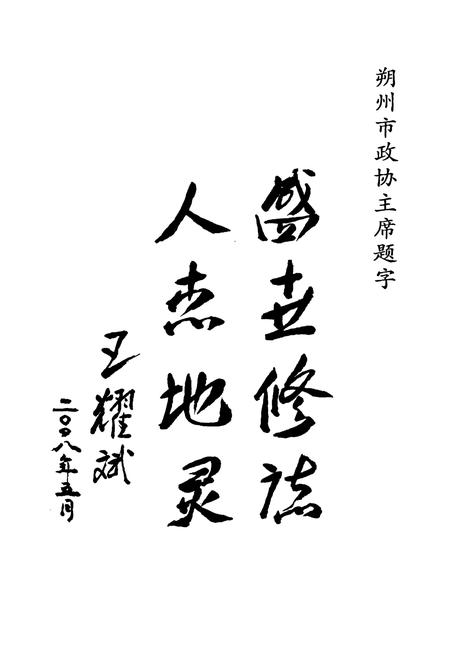 朔州市政协主席题字
盛世修志
人杰地灵
王耀斌
二〇〇八年五月